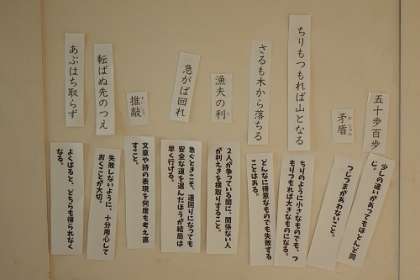 五十歩百歩
少しの違いがあってもほとんど同
じ。
矛盾
つじつまがあわないこと。
ちりもつもれば山となる
ちりのように小さなものでも、つ
もりつもれば大きなものになる。
さるも木から落ちる
どんなに得意なものでも失敗する
ことはある。
漁夫の利
2人が争っている間に、関係ない人
が利えきを横取りすること。
急がば回れ
急ぐときこそ、遠回りになっても
安全な道を選んだほうが結局は
早く行ける。
推敲
文章や詩の表現を何度も考え直
すこと。
転ばぬ先のつえ
失敗しないように、十分用心して
おくことが大切。
あぶはち取らず
よくばると、どちらも得られなく
なる。